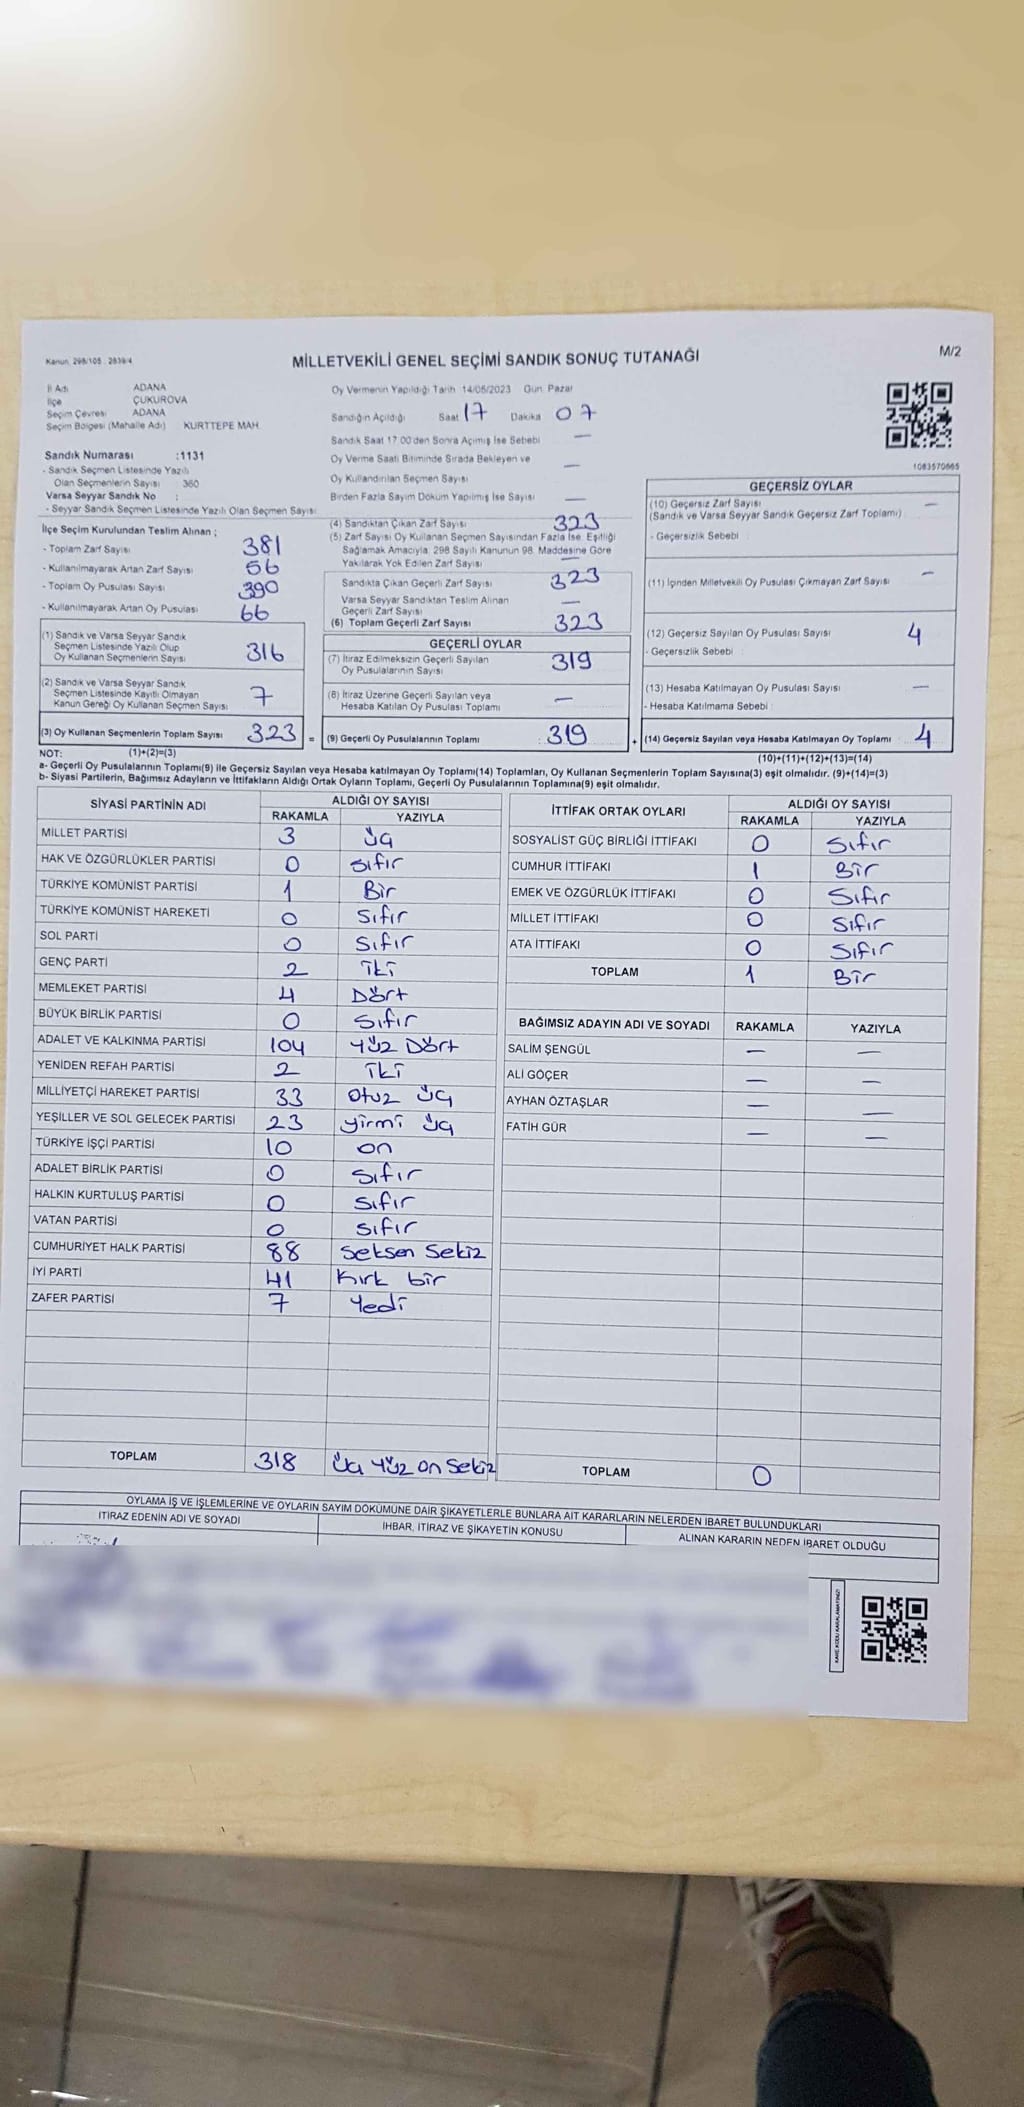 Kanun, 298/105 - 2839/4
MİLLETVEKİLİ GENEL SEÇİMİ SANDIK SONUÇ TUTANAĞI
M/2
İl Adı ADANA
İlçe ÇUKUROVA
Seçim Çevresi ADANA
Seçim Bölgesi (Mahalle Adı) KURTTEPE MAH.
Sandık Numarası :1131
- Sandık Seçmen Listesinde Yazılı
Olan Seçmenlerin Sayısı : 360
Varsa Seyyar Sandık No :
- Seyyar Sandık Seçmen Listesinde Yazılı Olan Seçmen Sayısı
Oy Vermenin Yapıldığı Tarih 14/05/2023 Gün: Pazar
Sandığın Açıldığı Saat 17 Dakika 07
Sandık Saat 17.00'den Sonra Açılmış İse Sebebi —
Oy Verme Saati Bitiminde Sırada Bekleyen ve
Oy Kullandırılan Seçmen Sayısı —
Birden Fazla Sayım Döküm Yapılmış İse Sayısı —
1083570665
İlçe Seçim Kurulundan Teslim Alınan ;
- Toplam Zarf Sayısı 381
- Kullanılmayarak Artan Zarf Sayısı 56
- Toplam Oy Pusulası Sayısı 390
- Kullanılmayarak Artan Oy Pusulası 66
(1) Sandık ve Varsa Seyyar Sandık
Seçmen Listesinde Yazılı Olup
Oy Kullanan Seçmenlerin Sayısı 316
(2) Sandık ve Varsa Seyyar Sandık
Seçmen Listesinde Kayıtlı Olmayan
Kanun Gereği Oy Kullanan Seçmen Sayısı 7
(3) Oy Kullanan Seçmenlerin Toplam Sayısı 323 =
(4) Sandıktan Çıkan Zarf Sayısı 323
(5) Zarf Sayısı Oy Kullanan Seçmen Sayısından Fazla İse, Eşitliği
Sağlamak Amacıyla, 298 Sayılı Kanunun 98. Maddesine Göre
Yakılarak Yok Edilen Zarf Sayısı —
Sandıkta Çıkan Geçerli Zarf Sayısı 323
Varsa Seyyar Sandıktan Teslim Alınan
Geçerli Zarf Sayısı —
(6) Toplam Geçerli Zarf Sayısı 323
GEÇERLİ OYLAR
(7) İtiraz Edilmeksizin Geçerli Sayılan
Oy Pusulalarının Sayısı 319
(8) İtiraz Üzerine Geçerli Sayılan veya
Hesaba Katılan Oy Pusulası Toplamı —
(9) Geçerli Oy Pusulalarının Toplamı 319 +
GEÇERSİZ OYLAR
(10) Geçersiz Zarf Sayısı —
(Sandık ve Varsa Seyyar Sandık Geçersiz Zarf Toplamı)
- Geçersizlik Sebebi :
(11) İçinden Milletvekili Oy Pusulası Çıkmayan Zarf Sayısı —
(12) Geçersiz Sayılan Oy Pusulası Sayısı 4
- Geçersizlik Sebebi :
(13) Hesaba Katılmayan Oy Pusulası Sayısı —
- Hesaba Katılmama Sebebi :
(14) Geçersiz Sayılan veya Hesaba Katılmayan Oy Toplamı 4
NOT: (1)+(2)=(3) (10)+(11)+(12)+(13)=(14)
a- Geçerli Oy Pusulalarının Toplamı(9) ile Geçersiz Sayılan veya Hesaba katılmayan Oy Toplamı(14) Toplamları, Oy Kullanan Seçmenlerin Toplam Sayısına(3) eşit olmalıdır. (9)+(14)=(3)
b- Siyasi Partilerin, Bağımsız Adayların ve İttifakların Aldığı Ortak Oyların Toplamı, Geçerli Oy Pusulalarının Toplamına(9) eşit olmalıdır.
SİYASİ PARTİNİN ADI ALDIĞI OY SAYISI
RAKAMLA YAZIYLA
MİLLET PARTİSİ 3 üç
HAK VE ÖZGÜRLÜKLER PARTİSİ 0 sıfır
TÜRKİYE KOMÜNİST PARTİSİ 1 Bir
TÜRKİYE KOMÜNİST HAREKETİ 0 sıfır
SOL PARTİ 0 sıfır
GENÇ PARTİ 2 iki
MEMLEKET PARTİSİ 4 Dört
BÜYÜK BİRLİK PARTİSİ 0 sıfır
ADALET VE KALKINMA PARTİSİ 104 yüz Dört
YENİDEN REFAH PARTİSİ 2 iki
MİLLİYETÇİ HAREKET PARTİSİ 33 otuz üç
YEŞİLLER VE SOL GELECEK PARTİSİ 23 yirmi üç
TÜRKİYE İŞÇİ PARTİSİ 10 on
ADALET BİRLİK PARTİSİ 0 sıfır
HALKIN KURTULUŞ PARTİSİ 0 sıfır
VATAN PARTİSİ 0 sıfır
CUMHURİYET HALK PARTİSİ 88 seksen sekiz
İYİ PARTİ 41 kırk bir
ZAFER PARTİSİ 7 yedi
TOPLAM 318 üç yüz on sekiz
İTTİFAK ORTAK OYLARI ALDIĞI OY SAYISI
RAKAMLA YAZIYLA
SOSYALİST GÜÇ BİRLİĞİ İTTİFAKI 0 Sıfır
CUMHUR İTTİFAKI 1 Bir
EMEK VE ÖZGÜRLÜK İTTİFAKI 0 Sıfır
MİLLET İTTİFAKI 0 Sıfır
ATA İTTİFAKI 0 Sıfır
TOPLAM 1 Bir
BAĞIMSIZ ADAYIN ADI VE SOYADI RAKAMLA YAZIYLA
SALİM ŞENGÜL — —
ALİ GÖÇER — —
AYHAN ÖZTAŞLAR — —
FATİH GÜR — —
TOPLAM 0
OYLAMA İŞ VE İŞLEMLERİNE VE OYLARIN SAYIM DÖKÜMÜNE DAİR ŞİKAYETLERLE BUNLARA AİT KARARLARIN NELERDEN İBARET BULUNDUKLARI
İTİRAZ EDENİN ADI VE SOYADI İHBAR, İTİRAZ VE ŞİKAYETİN KONUSU ALINAN KARARIN NEDEN İBARET OLDUĞU
KARE KODU KARALAMAYINIZ!